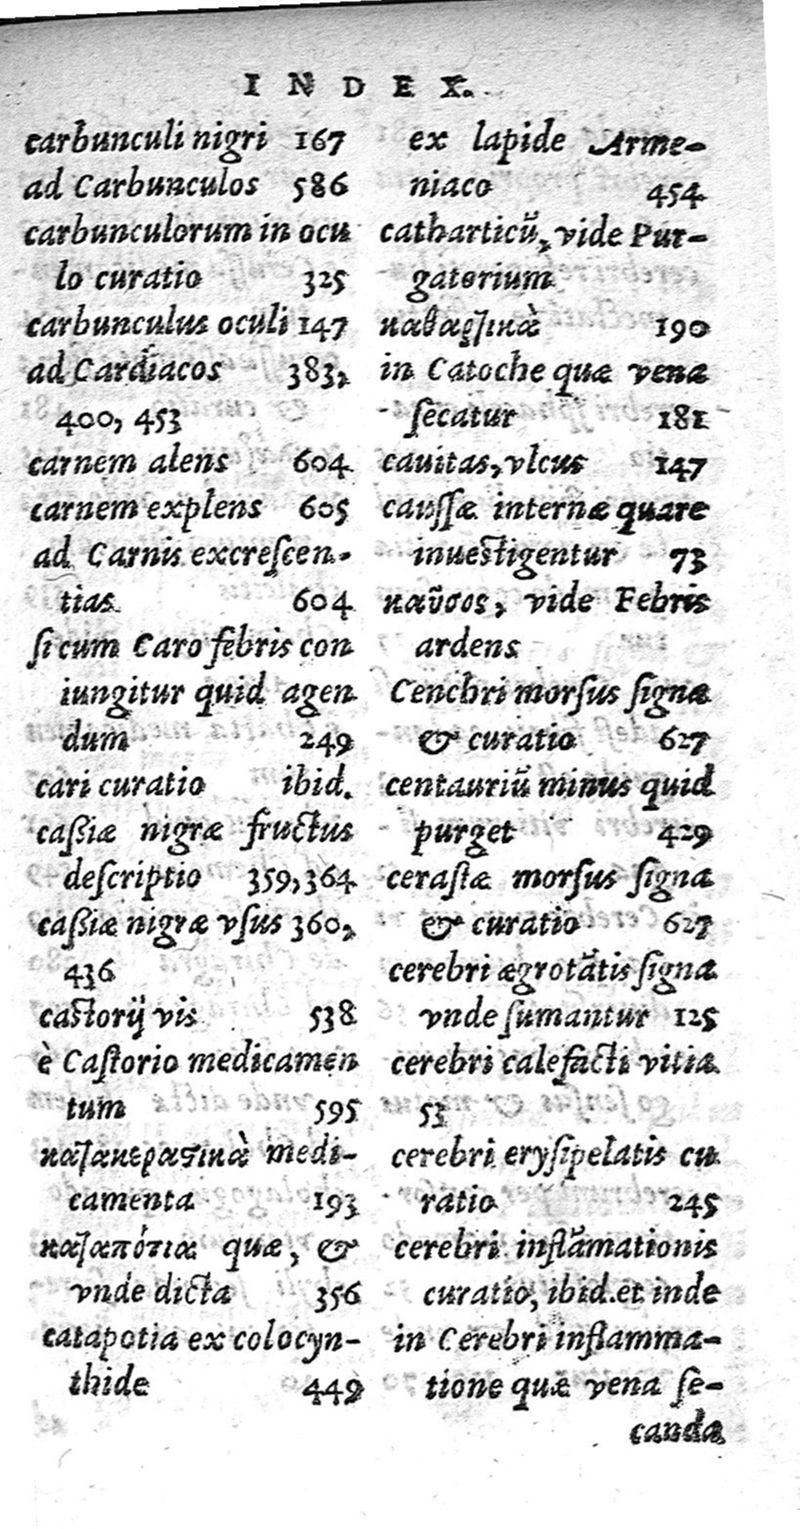 INDEX.
carbunculi nigri 167
ad Carbunculos 586
carbunculorum in ocu
lo curatio 325
carbunculus oculi 147
ad Cardiacos 383,
400, 453
carnem alens 604
carnem explens 605
ad Carnis excreſcen-
tias 604
ſi cum Caro febris con
iungitur quid agen
dum 249
cari curatio ibid.
caßiæ nigræ fructus
deſcriptio 359,364
caßiæ nigræ vſus 360,
436
castorij vis 538
è Caſtorio medicamen
tum 595
κατακεραστικὰ medi-
camenta 193
καταπότια quæ, &
vnde dicta 356
catapotia ex colocyn-
thide 449
ex lapide Arme-
niaco 454
catharticũ, vide Pur-
gatorium
καθαρτικὰ 190
in Catoche quæ vena
ſecatur 181
cauitas, vlcus 147
cauſſæ internæ quare
inuestigentur 73
καῦσος, vide Febris
ardens
Cenchri morſus ſigna
& curatio 627
centauriũ minus quid
purget 429
ceraſtæ morſus ſigna
& curatio 627
cerebri ægrotãtis ſigna
vnde ſumantur 125
cerebri calefacti vitia
53
cerebri eryſipelatis cu
ratio 245
cerebri inflãmationis
curatio, ibid. et inde
in Cerebri inflamma-
tione quæ vena ſe-
canda